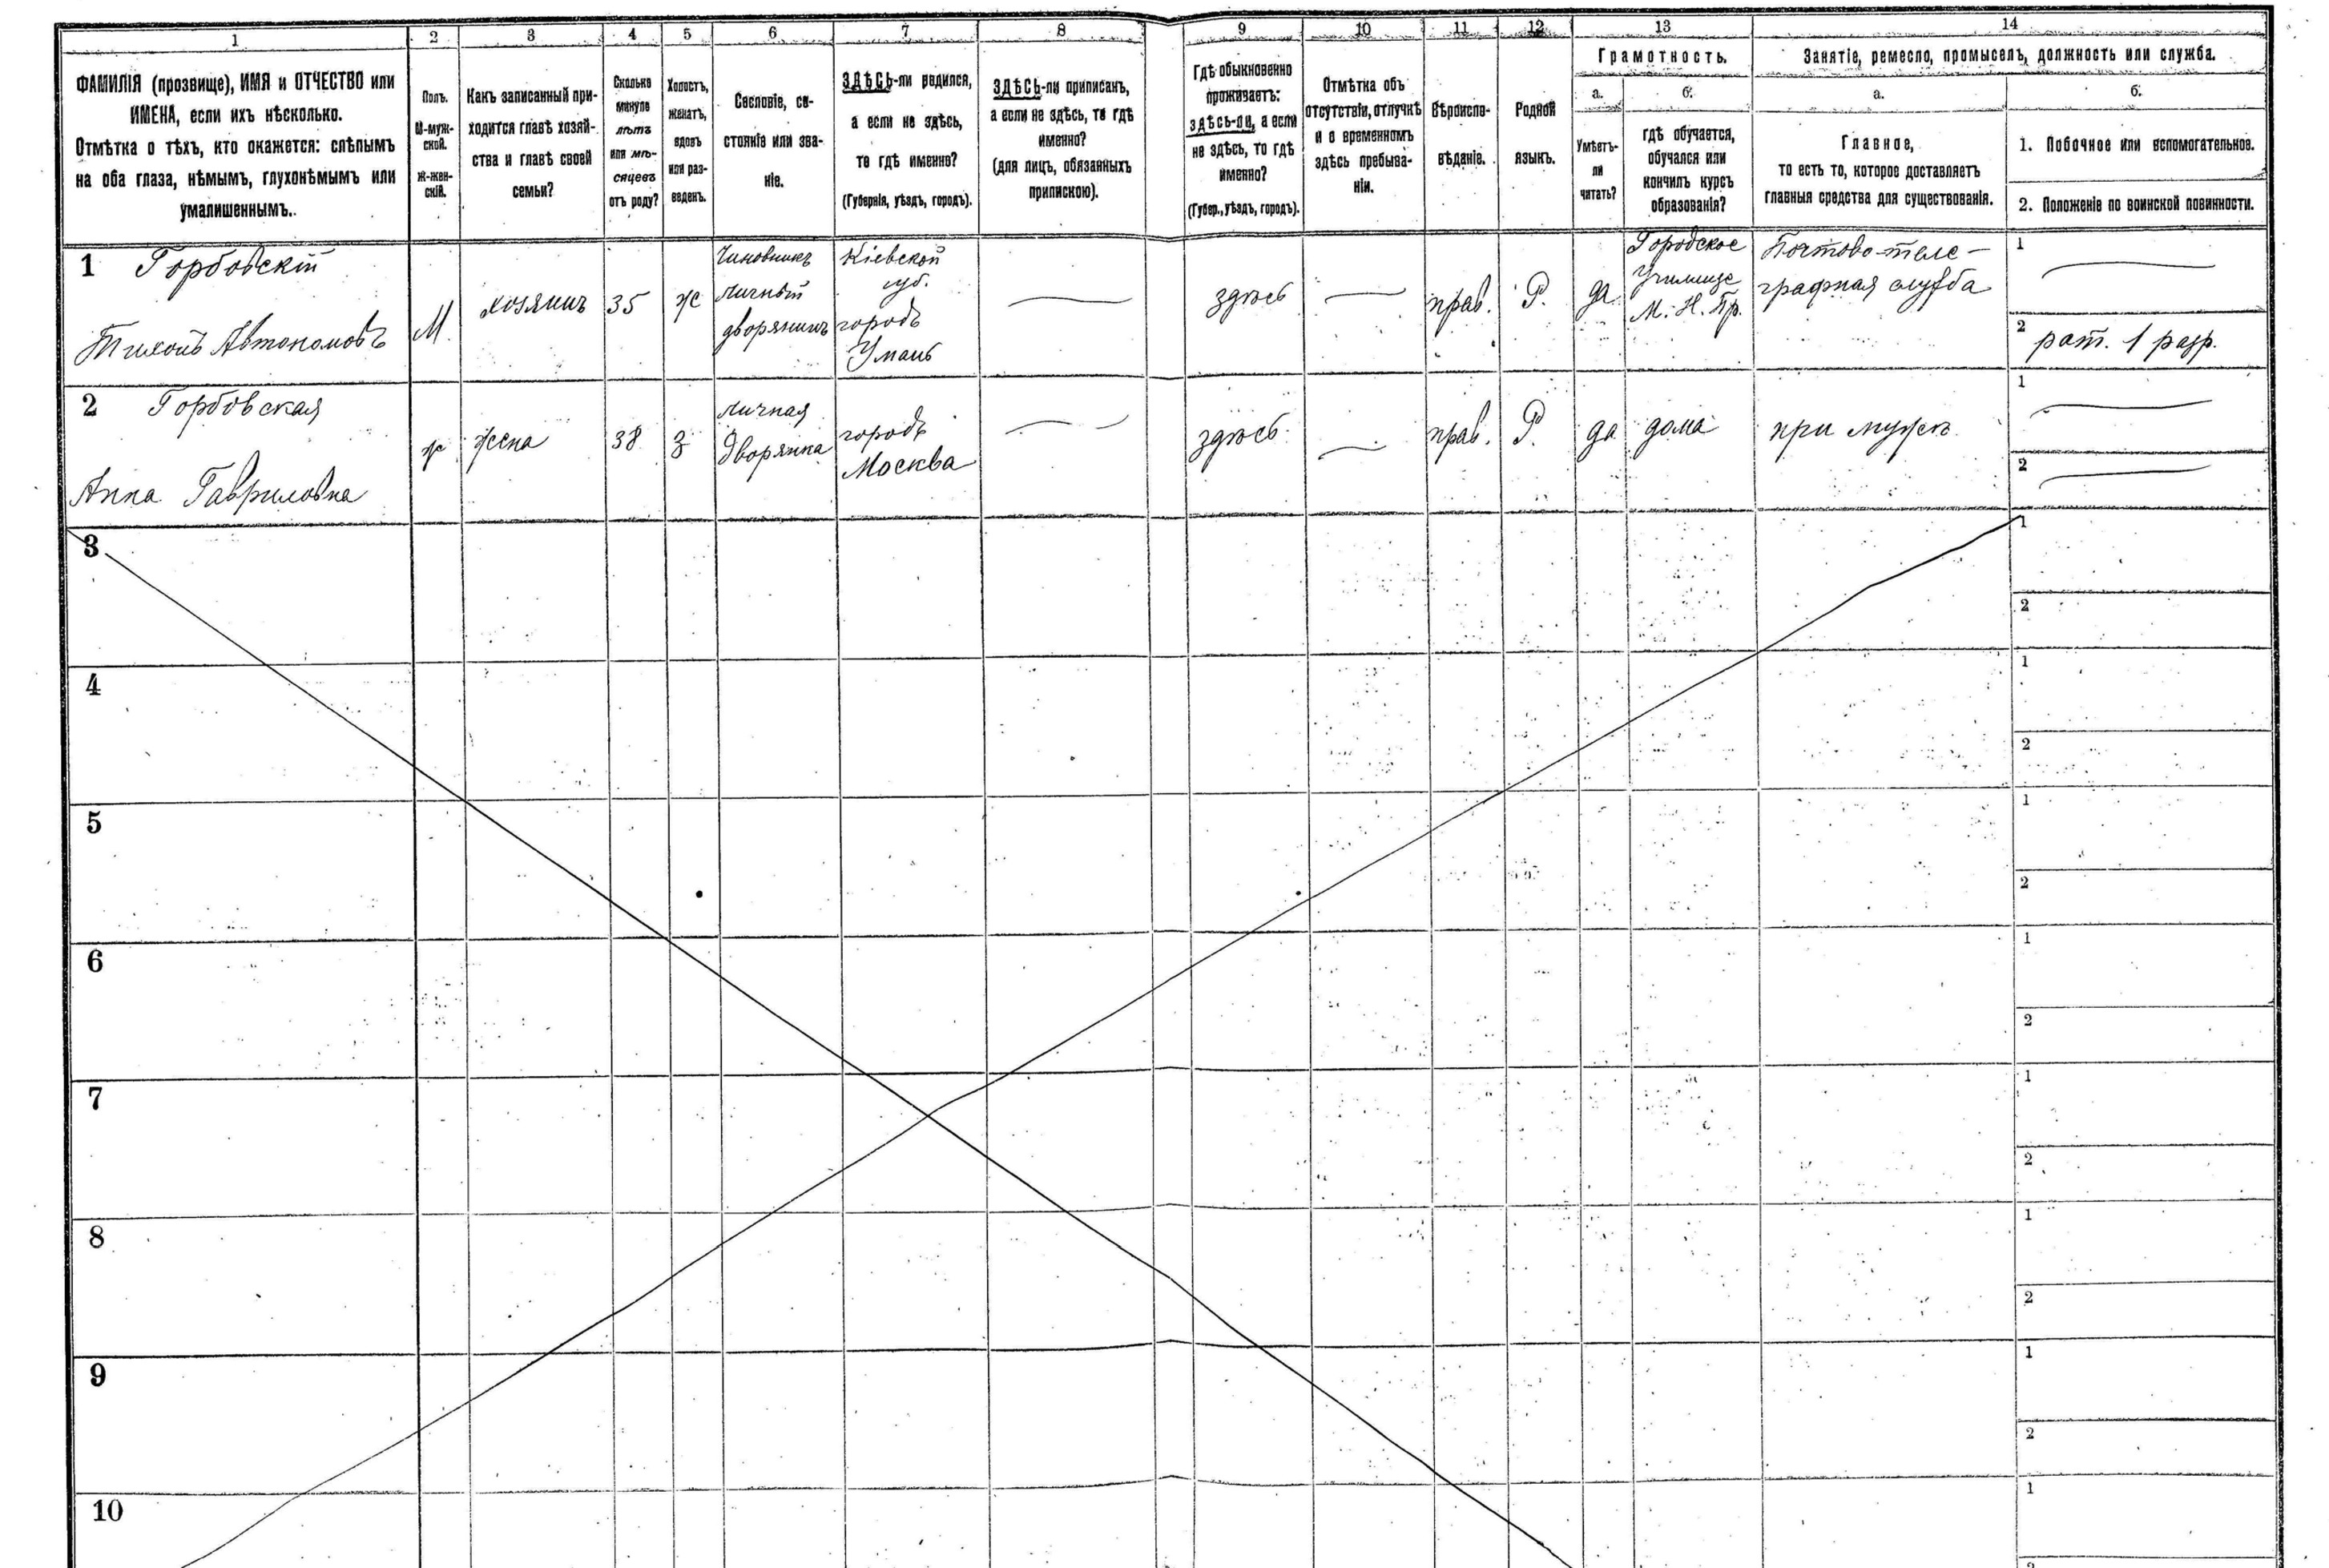 1 2 3 4 5 6 7 8 9 10 11 12 13 14
ФАМИЛІЯ (прозвище), ИМЯ и ОТЧЕСТВО или
ИМЕНА, если ихъ нѣсколько.
Отмѣтка о тѣхъ, кто окажется: слѣпымъ
на оба глаза, нѣмымъ, глухонѣмымъ или
умалишеннымъ.
Полъ.
М-муж-
ской.
Ж-жен-
скій.
Какъ записанный при-
ходится главѣ хозяй-
ства и главѣ своей
семьи?
Сколько
минуло
лѣтъ
или мѣ-
сяцевъ
отъ роду?
Холостъ,
женатъ,
вдовъ
или раз-
веденъ.
Сословіе, со-
стояніе или зва-
ніе.
ЗДѢСЬ-ли родился,
а если не здѣсь,
то гдѣ именно?
(Губернія, уѣздъ, городъ).
ЗДѢСЬ-ли приписанъ,
а если не здѣсь, то гдѣ
именно?
(для лицъ, обязанныхъ
припискою).
Гдѣ обыкновенно
проживаетъ:
здѣсь-ли, а если
не здѣсь, то гдѣ
именно?
(Губер., уѣздъ, городъ).
Отмѣтка объ
отсутствіи, отлучкѣ
и о временномъ
здѣсь пребыва-
ніи.
Вѣроиспо-
вѣданіе.
Родной
языкъ.
Грамотность.
а.
Умѣетъ-
ли
читать?
б.
гдѣ обучается,
обучался или
кончилъ курсъ
образованія?
Занятіе, ремесло, промыселъ, должность или служба.
а.
Главное,
то есть то, которое доставляетъ
главныя средства для существованія.
б.
1. Побочное или вспомогательное.
2. Положеніе по воинской повинности.
1 Горбовскій
Тихонъ Автономовъ
М.
хозяинъ
35
ж
Чиновникъ
личный
дворянинъ
Кіевской
губ.
городъ
Умань
здѣсь
прав.
Р.
да
Городское
Училище
М. Н. Пр.
Почтово-теле-
графная служба
1
2 рат. 1 разр.
2 Горбовская
Анна Гавриловна
ж
жена
38
з
личная
дворянка
городъ
Москва
здѣсь
прав.
Р.
да
дома
при мужѣ
1
2
3
1
2
4
1
2
5
1
2
6
1
2
7
1
2
8
1
2
9
1
2
10
1
2